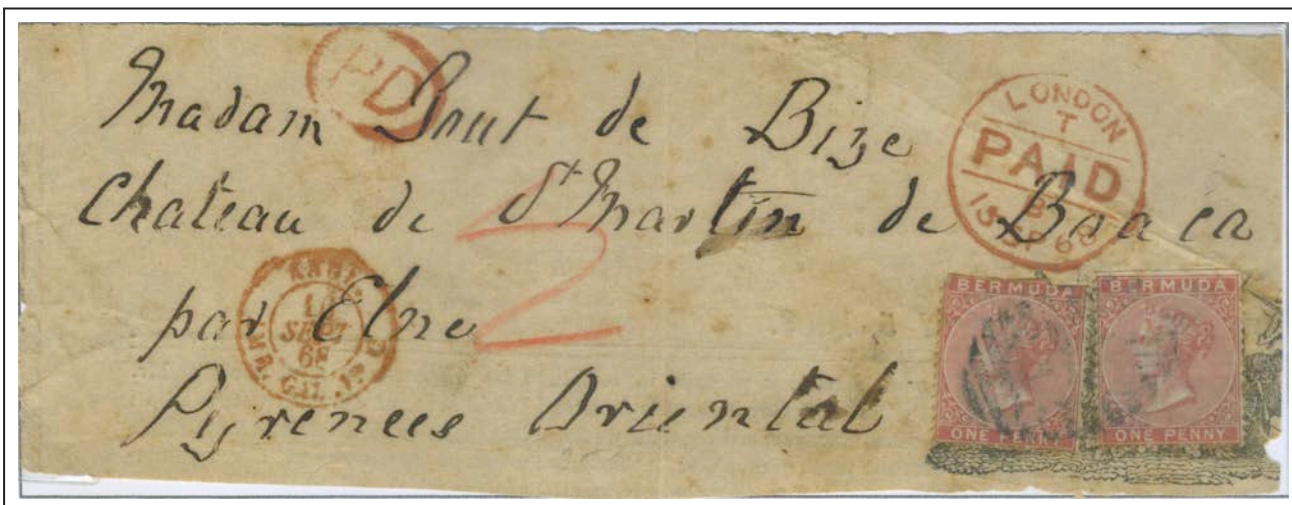 PD
Madam Bout de Bize
Chateau de St Martin de
par Elne
Pyrenees Oriental
2
LONDON
T
PAID
SP 68
SEPT
68
BERMUDA
ONE PENNY
BERMUDA
ONE PENNY